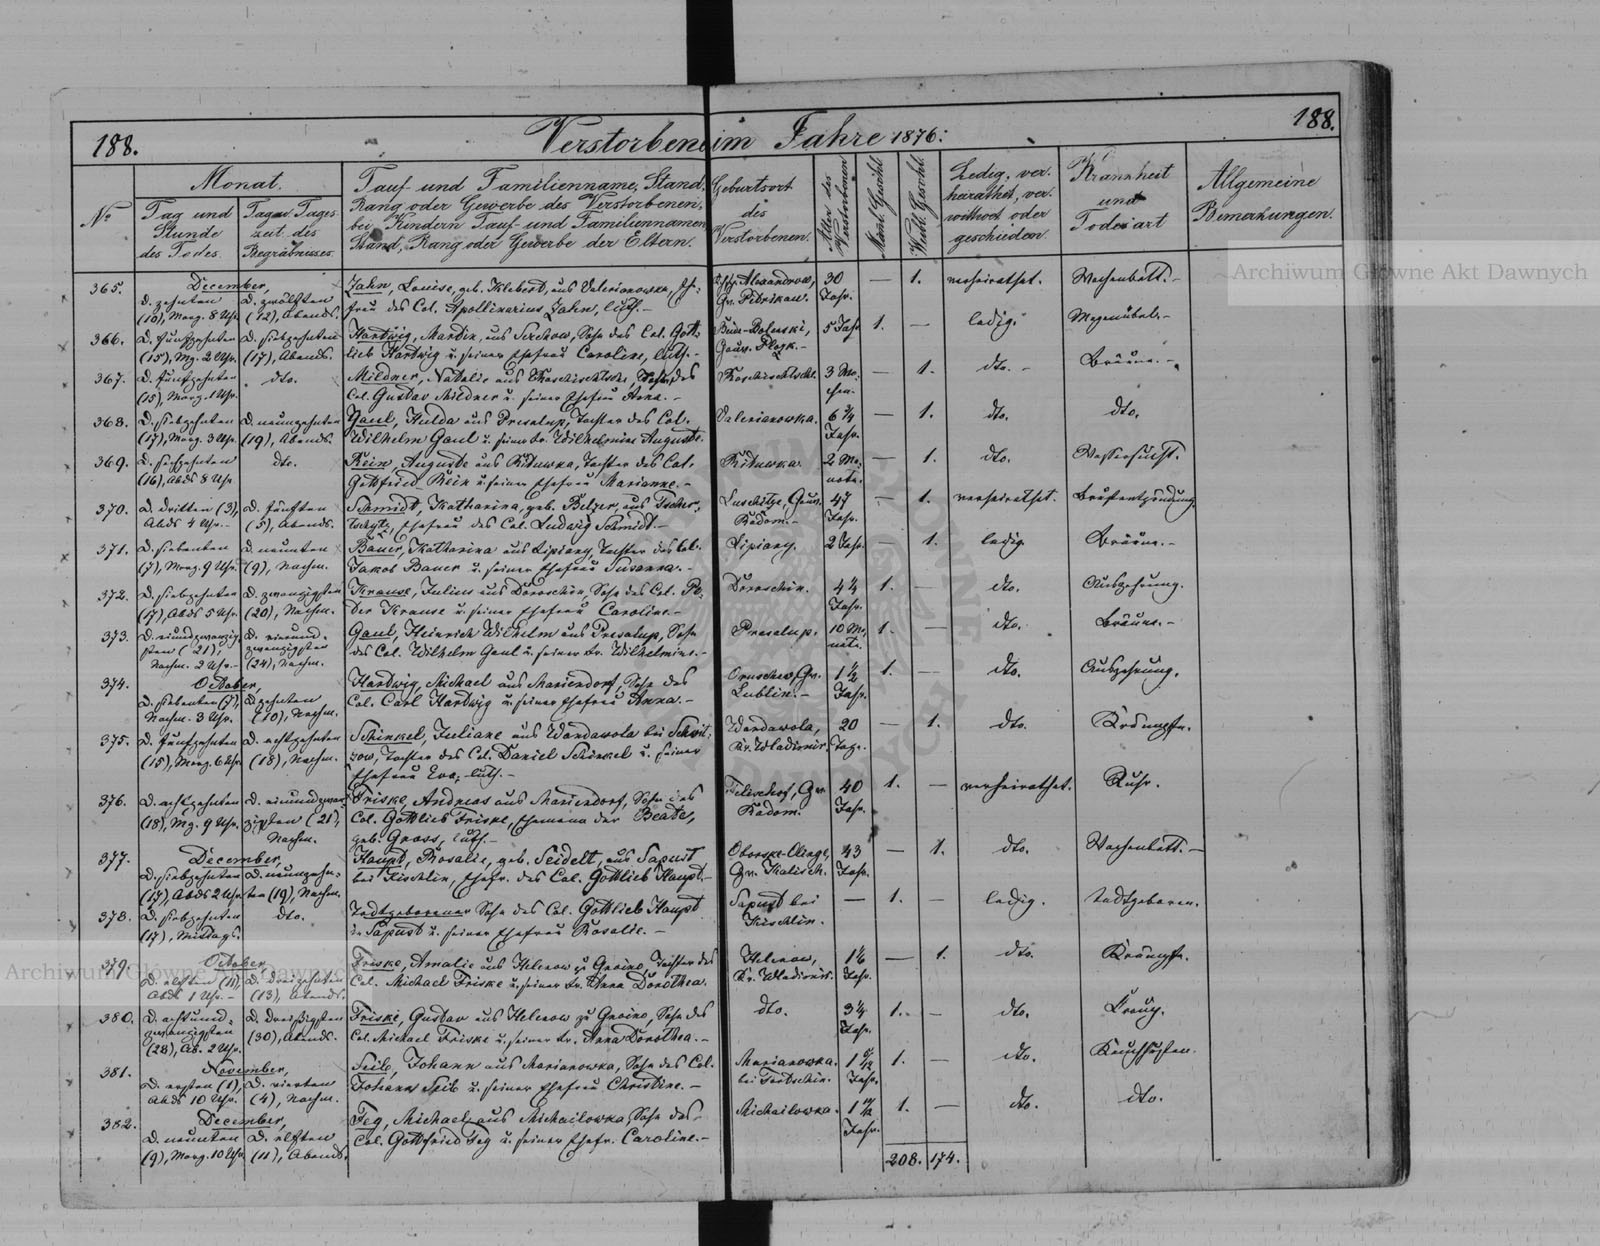 188.
Verstorbene im Jahre 1876:
188.
№
Monat.
Tag und Stunde des Todes.
Tag u. Tages zeit des Begräbnisses.
Tauf- und Familienname, Stand,
Rang oder Gewerbe des Verstorbenen,
bei Kindern Tauf- und Familiennamen
Stand, Rang oder Gewerbe der Eltern.
Geburtsort des Verstorbenen.
Alter des Verstorbenen
Männl. Geschl.
Weibl. Geschl.
Ledig, ver-
heirathet, ver-
wittwet oder
geschieden.
Krankheit
und
Todesart
Allgemeine
Bemerkungen.
365. December,
D. zehnten D. zwölften Jahn, Louise, geb. Klebert, aus Valerianowka, Eh- Alexandrow, 30 — 1. verheirathet. Wochenbett.-
(10), Morg. 8 Uhr (12), Abends. frau des Col. Apollinarius Jahn, luth.- Gv. Petrikau. Jahr.
366. D. fünfzehnten D. siebzehnten Hartwig, Martin, aus Sohn des Col. Gott- 5 Jahr 1. — ledig.
(15), Mg. 2 Uhr. (17), Abends. lieb Hartwig u. seiner Ehefrau Caroline, luth.- Gouv. Plozk.-
367. D. fünfzehnten dto. Mildner, Natalie aus des 3 Mo- — 1. dto.- Bräune.-
(15), Morg. 1 Uhr. Col. Gustav Mildner u. seiner Ehefrau Anna.-
368. D. siebzehnten D. neunzehnten Gaul, Hulda aus Presalup, Tochter des Col. Valerianowka. 6 3/4 — 1. dto. dto.
(17), Morg. 3 Uhr. (19), Abends. Wilhelm Gaul u. seiner Fr. Wilhelmine Auguste. Jahr.
369. D. sechzehnten dto. Rein, Auguste aus Kituwka, Tochter des Col. Kituwka. 2 Mo- — 1. dto. Wassersucht.
(16), Abds 8 Uhr Gottfried Rein u. seiner Ehefrau Marianne.- nate.
370. D. dritten (3), D. fünften Schmidt, Katharina, geb. Belzer, aus Gouv. 47 — 1. verheirathet. Brustentzündung.
Abds 4 Uhr.- (5), Abends. Ehefrau des Col. Ludwig Schmidt.- Radom.- Jahr.
371. D. siebenten D. neunten Bauer, Katharina aus Lipiany, Tochter des Col. Lipiany. 2 Jahr. — 1. ledig Bräune.-
(7), Morg. 9 Uhr. (9), Nachm. Jakob Bauer u. seiner Ehefrau Susanna.-
372. D. siebzehnten D. zwanzigsten Krause, Julius aus Dorroschin, Sohn des Col. Pe- Dorroschin. 4 1/4 1. — dto. Auszehrung.
(17), Abds 5 Uhr. (20), Nachm. ter Krause u. seiner Ehefrau Caroline.- Jahr.
373. D. einundzwanzig- D. vierund- Gaul, Heinrich Wilhelm aus Presalup, Sohn Presalup. 10 Mo- 1. — dto. Bräune.-
sten (21), zwanzigsten des Col. Wilhelm Gaul u. seiner Fr. Wilhelmine.- nate.
Nachm. 2 Uhr.- (24), Nachm.
374. October,
D. siebenten (7), D. zehnten Hardwig, Michael aus Mariendorf, Sohn des Gv. 1 1/2 1. — dto. Auszehrung.
Nachm. 3 Uhr. (10), Nachm. Col. Carl Hardwig u. seiner Ehefrau Anna.- Lublin.- Jahr.
375. D. fünfzehnten D. achtzehnten Schinkel, Juliane aus Wandawola bei Wandawola, 20 — 1. dto. Krämpfe.
(15), Morg. 6 Uhr (18), Nachm. Tochter des Col. Daniel Schinkel u. seiner Kr. Wladimir. Tage.
Ehefrau Eva, luth.-
376. D. achtzehnten D. einundzwan- Friske, Andreas aus Mariendorf, Sohn des Gv. 40 1. — verheirathet. Ruhr.
(18), Mg. 9 Uhr. zigsten (21), Col. Gottlieb Friske, Ehemann der Beate, Radom. Jahr.
Nachm. geb. Gross, luth.-
377. December,
D. siebzehnten D. neunzehn- Haupt, Rosalie, geb. Seidelt, aus Sapust 43 — 1. dto. Wochenbett.-
(17), Abds 2 Uhr ten (19), Nachm. bei Kischlin, Ehefr. des Col. Gottlieb Haupt.- Gv. Kalisch. Jahr.
378. D. siebzehnten dto. Todtgeborener Sohn des Col. Gottlieb Haupt Sapust bei — 1. — ledig. todtgeboren.
(17), Mittags. in Sapust u. seiner Ehefrau Rosalie.- Kischlin.
379. October,
D. elften (11), D. dreizehnten Friske, Amalie aus Helenow zu Gnoino, Tochter des Helenow, — 1. dto. Krämpfe.
Abds 1 Uhr.- (13), Abends. Col. Michael Friske u. seiner Fr. Anna Dorothea. Kr. Wladimir. Jahr.
380. D. achtund- D. dreißigsten Friske, Gustav aus Helenow zu Gnoino, Sohn des dto. 3 1/4 1. — dto.
zwanzigsten (30), Abends. Col. Michael Friske u. seiner Fr. Anna Dorothea.- Jahr.
(28), Ab. 2 Uhr.
381. November,
D. ersten (1), D. vierten Seib, Johann aus Marianowka, Sohn des Col. Marianowka 1. — dto. Keuchhusten.
Abds 10 Uhr. (4), Nachm. Johann Seib u. seiner Ehefrau Christine.- bei Jahr.
382. December,
D. neunten D. elften Feg, Michael aus Michailowka, Sohn des Michailowka. 1. — dto. dto.
(9), Morg. 10 Uhr (11), Abends. Col. Gottfried Feg u. seiner Ehefr. Caroline.- Jahr.
208. 174.
Archiwum Główne Akt Dawnych
Archiwum Główne Akt Dawnych